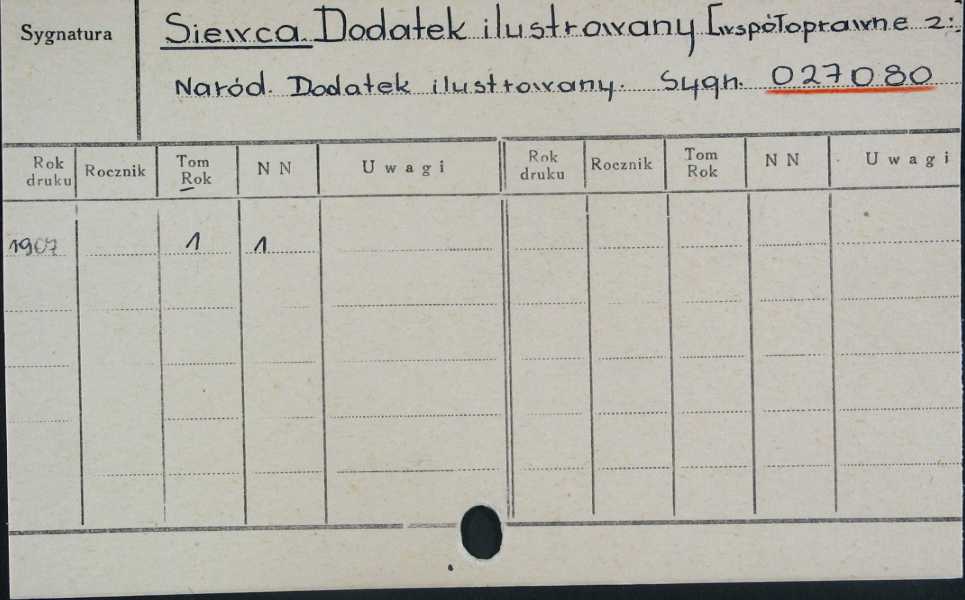 Sygnatura
Siewca. Dodatek ilustrowany [współoprawne z:
Naród. Dodatek ilustrowany. Sygn. 027080
Rok druku Rocznik Tom Rok N N Uwagi Rok druku Rocznik Tom Rok N N Uwagi
1907 1 1